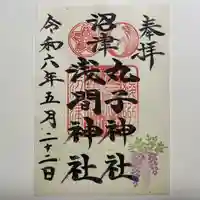 奉拝
丸子神社
沼津
浅間神社
令和六年五月二十二日